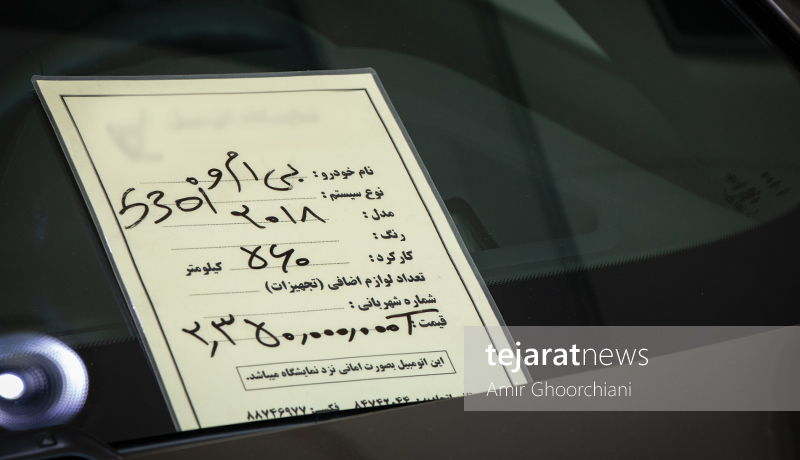 نام خودرو: بی ام و
نوع سیستم: 530i
مدل: ۲۰۱۸
رنگ:
کارکرد: کیلومتر
تعداد لوازم اضافی (تجهیزات)
شماره شهربانی:
قیمت:
این اتومبیل بصورت امانی نزد نمایشگاه میباشد.
۸۴۷۶۲۰۴۴ فکس: ۸۸۷۴۶۹۷۷
tejaratnews
Amir Ghoorchiani